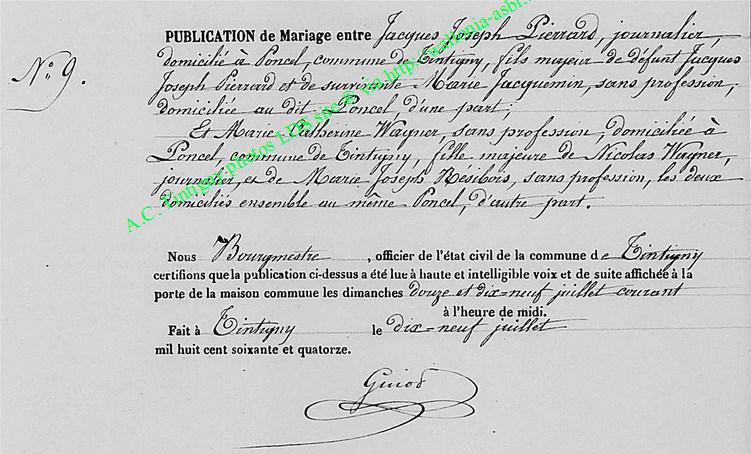 PUBLICATION de Mariage entre Jacques Joseph Pierrard, journalier,
N° 9.
domicilié à Poncel, commune de Tintigny, fils majeur de défunt Jacques
Joseph Pierrard et de survivante Marie Jacquemin, sans profession,
domiciliée au dit Poncel, d'une part;
Et Marie Catherine Wagner, sans profession, domiciliée à
Poncel, commune de Tintigny, fille majeure de Nicolas Wagner,
journalier, et de Marie Joseph Nesibois, sans profession, les deux
domiciliés ensemble au même Poncel, d'autre part.
Nous Bourgmestre, officier de l'état civil de la commune de Tintigny
certifions que la publication ci-dessus a été lue à haute et intelligible voix et de suite affichée à la
porte de la maison commune les dimanches douze et dix-neuf juillet courant
à l'heure de midi.
Fait à Tintigny le dix-neuf juillet
mil huit cent soixante et quatorze.
A.C. Tintigny photos LDS site © via http://wallonia-asbl